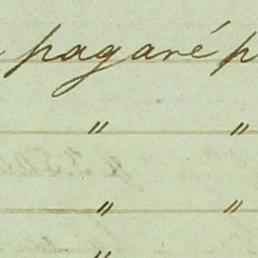 pagaré p
" "
" "
"